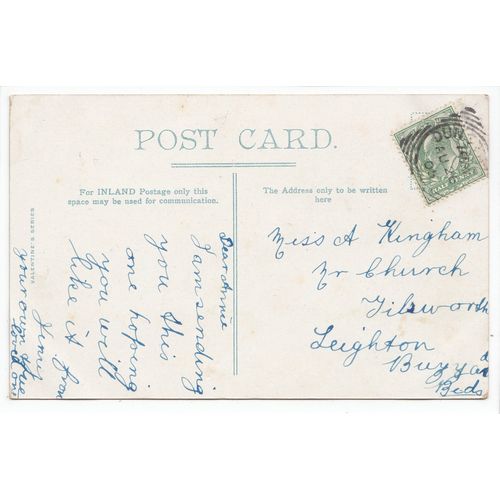 POST CARD.
For INLAND Postage only this
space may be used for communication.
The Address only to be written
here
VALENTINE'S SERIES
Dear Annie
I am sending
you this
one hoping
you will
like it from
your own true
loved one
Miss A Kingham
Nr Church
Tilsworth
Leighton
Buzzard
Beds
HALFPENNY